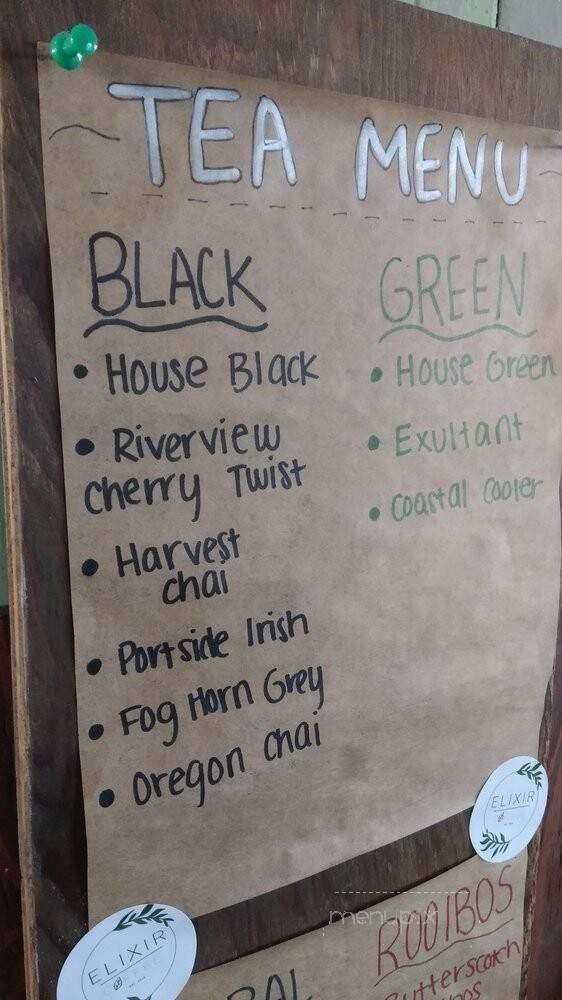 TEA MENU
BLACK
• House Black
• Riverview
Cherry Twist
• Harvest
chai
• Portside Irish
• Fog Horn Grey
• Oregon Chai
GREEN
• House Green
• Exultant
• Coastal Cooler
ELIXIR
ELIXIR
menupix
ROOIBOS
Butterscotch